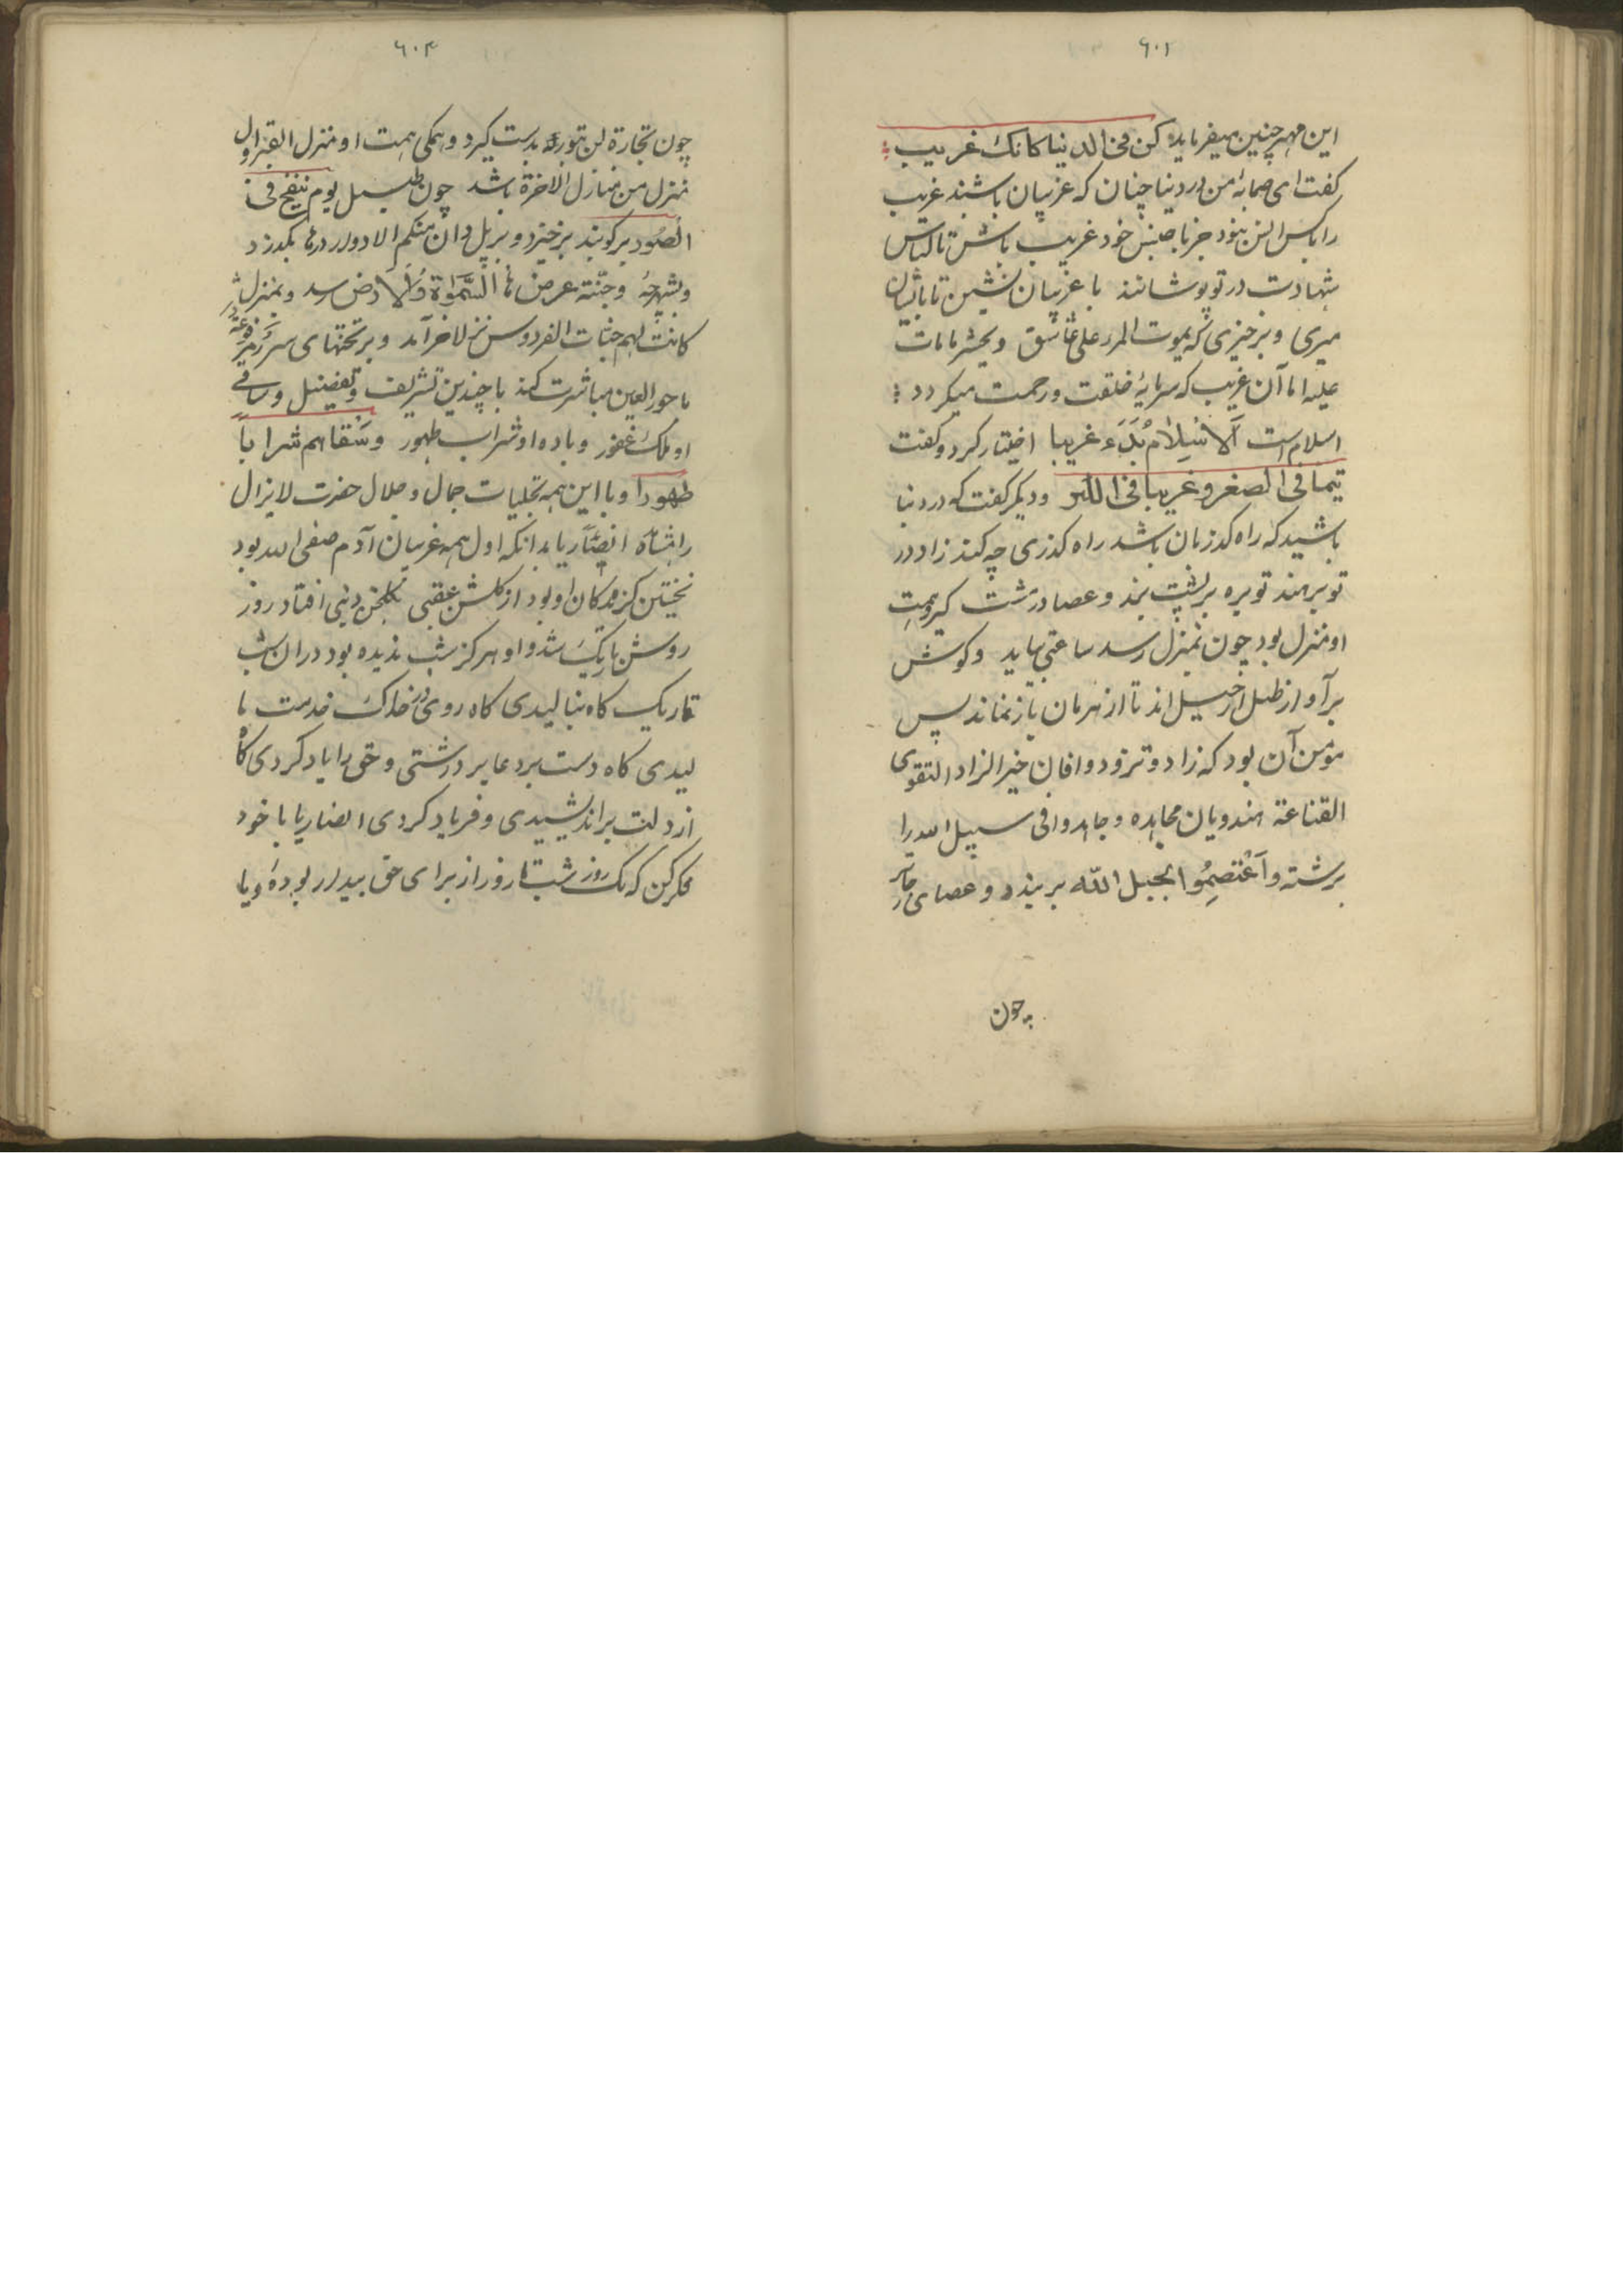 ۶۰۲
این مهتر چنین میفرماید کن فی الدنیا کانک غریب
کفت ای صحابهٔ من در دنیا چنان که غریبان باشند غریب
را باکس انس نبود جز با جنس خود غریب باش تا لباس
شهادت در تو پوشانند با غریبان نشین تا با ایشان
میری و برخیزی که یموت المرء علی عاشق ویحشر مامات
علیه اما آن غریب که سرمایهٔ خلقت ورحمت میکردد
اسلام است آلاسلام بدء غریبا اختیار کرد و کفت
یتیما فی الصغر و غریبا فی الکبر ودیکر کفت که در دنیا
باشید که راه کذریان باشد راه کذری چه کند زاد در
توبره نهد توبره بر پشت بندد وعصا در مشت کیرد همت
او منزل بود چون بمنزل رسد ساعتی بیاید وکوش
برآواز طبل الرحیل اند تا از همرهان باز نماند پس
مؤمن آن بود که زاد وتزودوا فان خیر الزاد التقوی
القناعة هندویان مجاهده وجاهدوا فی سبیل الله را
برشته واعتصموا بحبل الله بربندد وعصای
چون
۶۰۳
چون تجارة لن تبور بدست کیرد وهمکی همت او منزل القبر اول
منزل من منازل الاخرة باشد چون طبل یوم ینفخ فی
الصور برکوبند برخیزد و بر پل وان منکم الا واردها بکذرد
وبشهر وجنته عرضها السموات والارض رسد وبمنزل
کانت لهم جنات الفردوس نزلا فرآید وبر تختهای سرر مرفوعة
با حور العین مباشرت کند با چندین تشریف وتفضیل وساقی
او ملک غفور وباده او شراب طهور وسقاهم شرابا
طهورا وبا این همه تجلیات جمال و جلال حضرت لایزال
را مشاهده انصاریا بدانکه اول همه غریبان آدم صفی الله بود
نخستین او بود از کلشن عقبی بکلخن دنیی افتاد روز
روشن تاریک شد و او هرکز شب ندیده بود در ان شب
تاریک کاه بنالیدی کاه روی در خاک خدمت ما
لیدی کاه دست بر دعا برداشتی وحق را یاد کردی کاه
از دلت براندیشیدی و فریاد کردی انصاریا با خود
فکر کن که یک روز شب تا روز از برای حق بیدار بودهٔ ویا